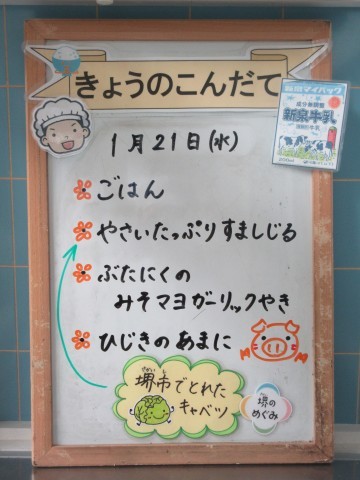 きょうのこんだて
新泉マイパック
成分無調整
新泉牛乳
1月21日(水)
ごはん
やさいたっぷりすましじる
ぶたにくの
みそマヨガーリックやき
ひじきのあまに
堺市でとれた
キャベツ
堺の
めぐみ